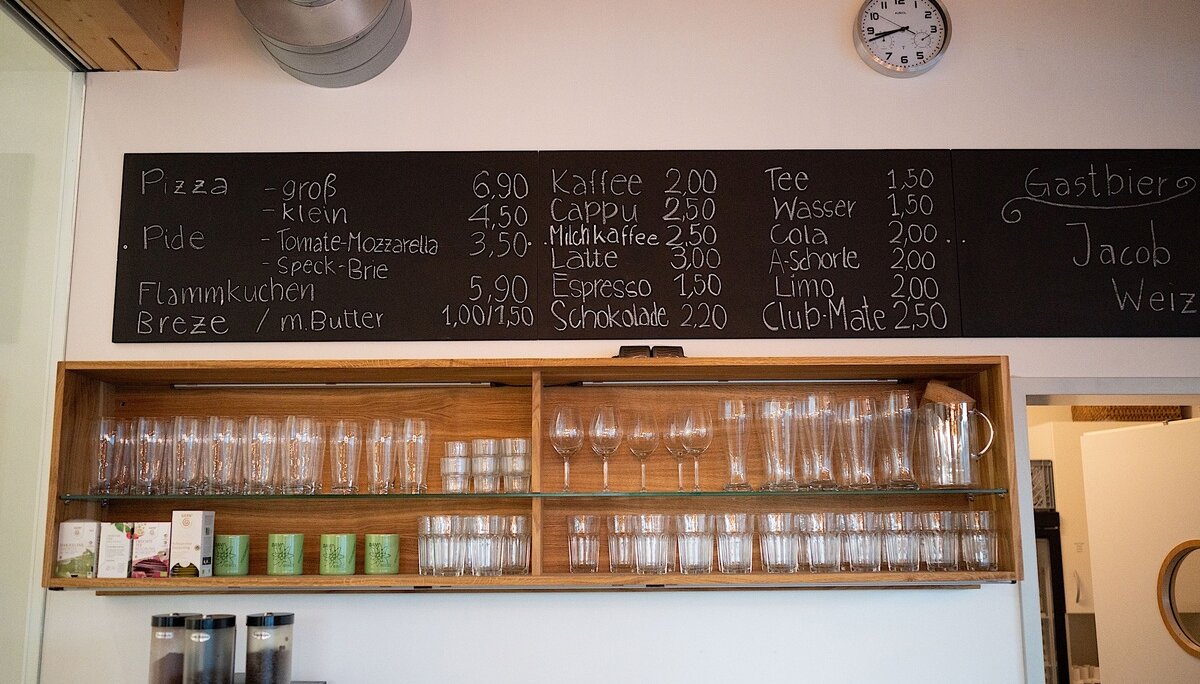 Pizza - groß 6,90
- klein 4,50
Pide - Tomate-Mozzarella 3,50
- Speck-Brie
Flammkuchen 5,90
Breze / m.Butter 1,00/1,50
Kaffee 2,00
Cappu 2,50
Milchkaffee 2,50
Latte 3,00
Espresso 1,50
Schokolade 2,20
Tee 1,50
Wasser 1,50
Cola 2,00
A-Schorle 2,00
Limo 2,00
Club-Mate 2,50
Gastbier
Jacob
Weiz